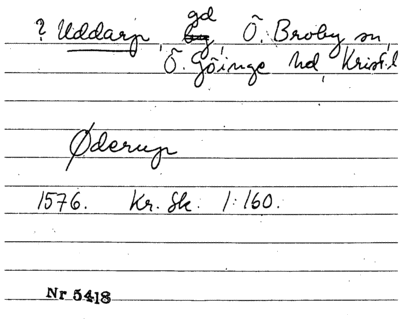 ? Uddarp, gd, Ö. Broby sn,
Ö. Göinge hd, Krist. l
Øderup
1576. Kr. Sk. 1:160.
Nr 5418